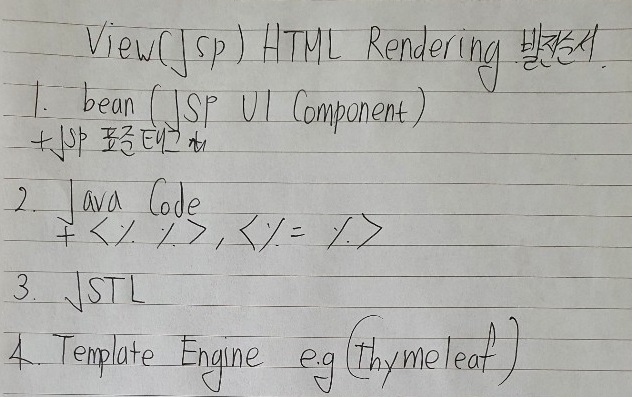 View(Jsp) HTML Rendering 발전순서.
1. bean (JSP UI Component)
+Jsp 표준 태그
2. Java Code
+ <% %>, <%= %>
3. JSTL
4. Template Engine e.g (Thymeleaf)